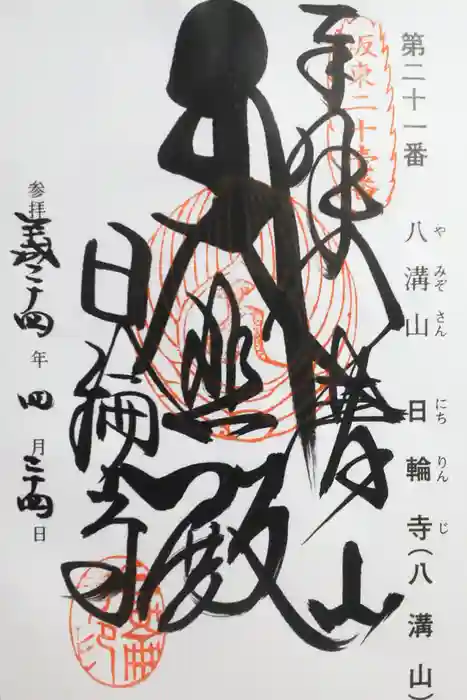 第二十一番 八溝山 日輪寺(八溝山)
や みぞ さん にち りん じ
坂東二十壱番
奉拝
山
大悲殿
日輪寺
参拝 二十四年 四月 二十四日